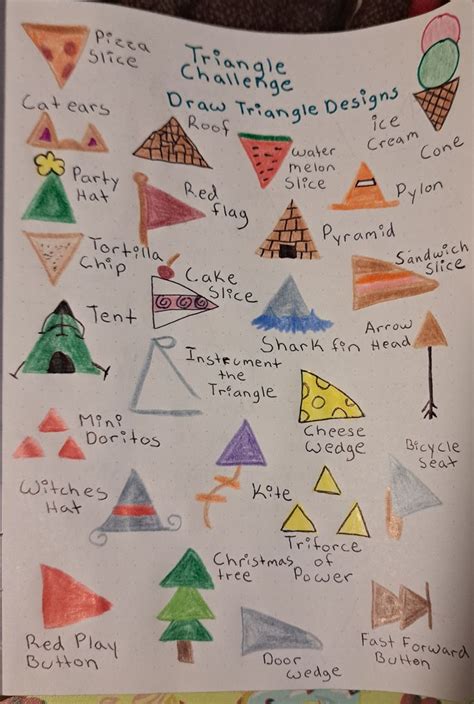 Pizza
Slice
Triangle
Challenge
Draw Triangle Designs
Cat ears
Roof
water
melon
Slice
ice
Cream
Cone
Party
Hat
Red
flag
Pylon
Pyramid
Tortilla
Chip
Cake
Slice
Sandwich
Slice
Tent
Shark fin
Arrow
Head
Instrument
the
Triangle
Mini
Doritos
Cheese
Wedge
Bicycle
Seat
Witches
Hat
Kite
Triforce
of
Power
Christmas
tree
Red Play
Button
Door
wedge
Fast Forward
Button